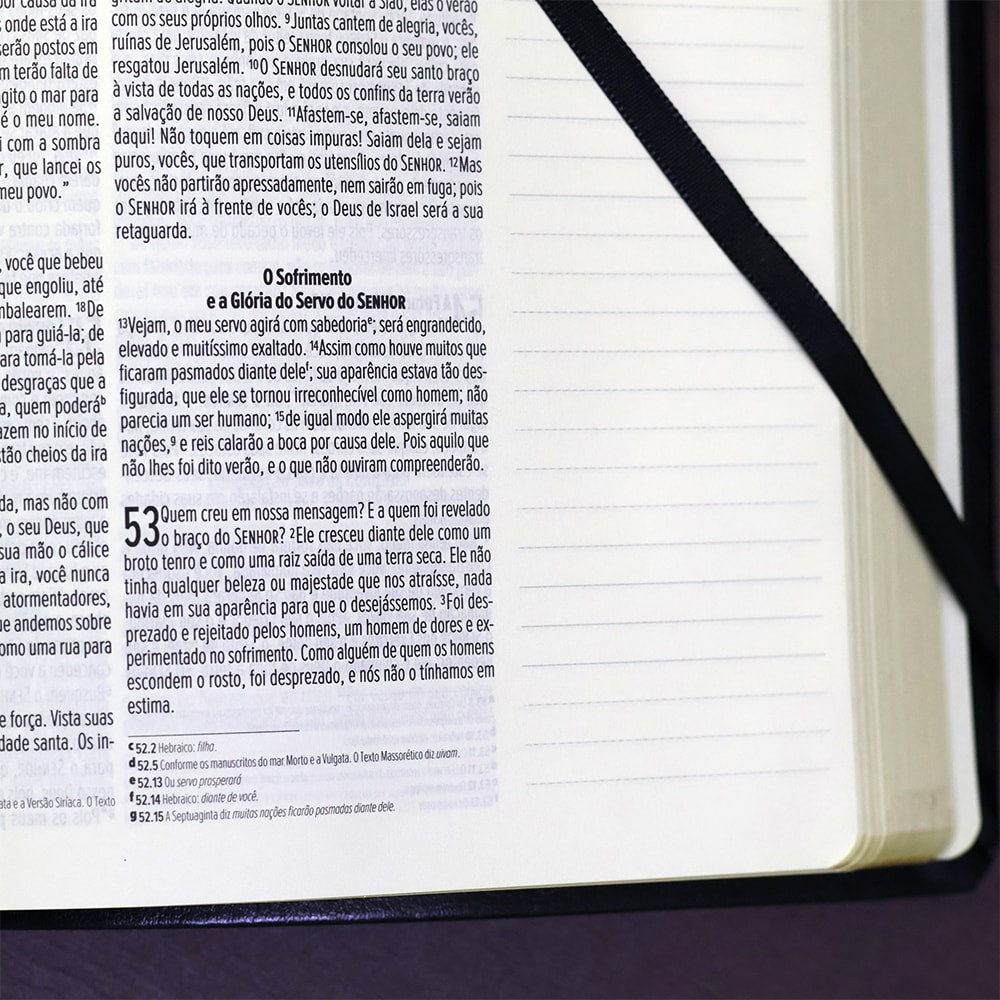 onde está a ira
serão postos em
terão falta de
gito o mar para
é o meu nome.
com a sombra
que lancei os
meu povo.”
, você que bebeu
que engoliu, até
nbalearem. ¹⁸De
para guiá-la; de
ara tomá-la pela
desgraças que a
a, quem poderáᵇ
azem no início de
tão cheios da ira
da, mas não com
, o seu Deus, que
sua mão o cálice
a ira, você nunca
atormentadores,
ue andemos sobre
omo uma rua para
e força. Vista suas
dade santa. Os in-
ata e a Versão Siríaca. O Texto
Quando o SENHOR voltar a Sião, elas o verão
com os seus próprios olhos. ⁹Juntas cantem de alegria, vocês,
ruínas de Jerusalém, pois o SENHOR consolou o seu povo; ele
resgatou Jerusalém. ¹⁰O SENHOR desnudará seu santo braço
à vista de todas as nações, e todos os confins da terra verão
a salvação de nosso Deus. ¹¹Afastem-se, afastem-se, saiam
daqui! Não toquem em coisas impuras! Saiam dela e sejam
puros, vocês, que transportam os utensílios do SENHOR. ¹²Mas
vocês não partirão apressadamente, nem sairão em fuga; pois
o SENHOR irá à frente de vocês; o Deus de Israel será a sua
retaguarda.
O Sofrimento
e a Glória do Servo do SENHOR
¹³Vejam, o meu servo agirá com sabedoriaᵉ; será engrandecido,
elevado e muitíssimo exaltado. ¹⁴Assim como houve muitos que
ficaram pasmados diante deleᶠ; sua aparência estava tão des-
figurada, que ele se tornou irreconhecível como homem; não
parecia um ser humano; ¹⁵de igual modo ele aspergirá muitas
nações,ᵍ e reis calarão a boca por causa dele. Pois aquilo que
não lhes foi dito verão, e o que não ouviram compreenderão.
53 Quem creu em nossa mensagem? E a quem foi revelado
o braço do SENHOR? ²Ele cresceu diante dele como um
broto tenro e como uma raiz saída de uma terra seca. Ele não
tinha qualquer beleza ou majestade que nos atraísse, nada
havia em sua aparência para que o desejássemos. ³Foi des-
prezado e rejeitado pelos homens, um homem de dores e ex-
perimentado no sofrimento. Como alguém de quem os homens
escondem o rosto, foi desprezado, e nós não o tínhamos em
estima.
c 52.2 Hebraico: filha.
d 52.5 Conforme os manuscritos do mar Morto e a Vulgata. O Texto Massorético diz uivam.
e 52.13 Ou servo prosperará
f 52.14 Hebraico: diante de você.
g 52.15 A Septuaginta diz muitas nações ficarão pasmadas diante dele.